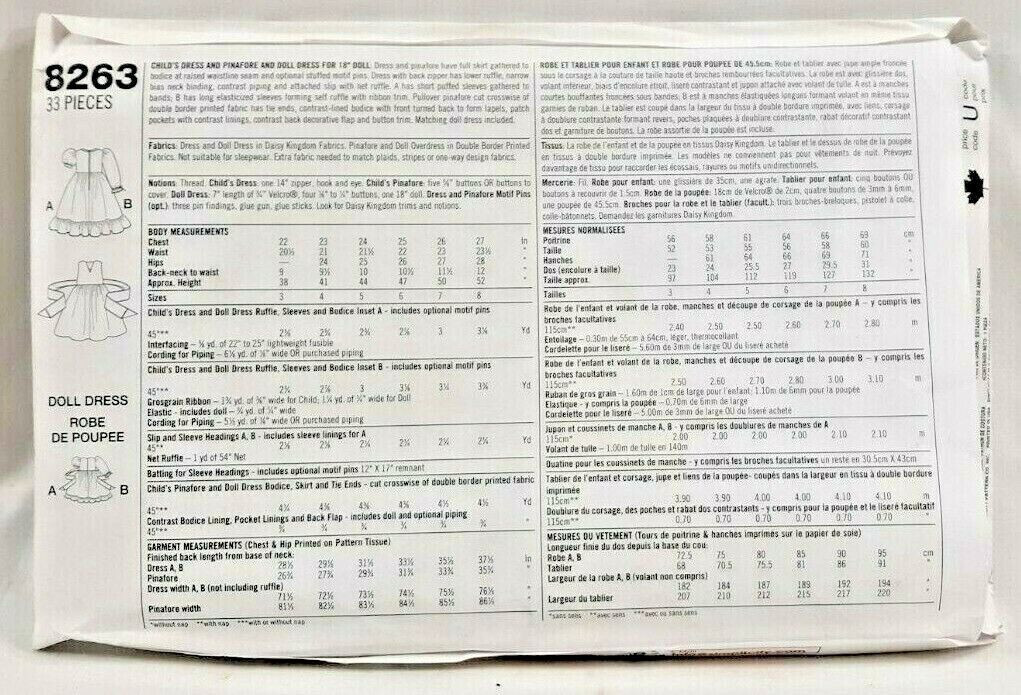 8263
33 PIECES
A
B
DOLL DRESS
ROBE
DE POUPEE
A
B
CHILD'S DRESS AND PINAFORE AND DOLL DRESS FOR 18" DOLL: Dress and pinafore have full skirt gathered to
bodice at raised waistline seam and optional stuffed motif pins. Dress with back zipper has lower ruffle, narrow
bias neck binding, contrast piping and attached slip with net ruffle. A has short puffed sleeves gathered to
bands; B has long elasticized sleeves forming self ruffle with ribbon trim. Pullover pinafore cut crosswise of
double border printed fabric has tie ends, contrast-lined bodice with front turned back to form lapels, patch
pockets with contrast linings, contrast back decorative flap and button trim. Matching doll dress included.
Fabrics: Dress and Doll Dress in Daisy Kingdom Fabrics. Pinafore and Doll Overdress in Double Border Printed
Fabrics. Not suitable for sleepwear. Extra fabric needed to match plaids, stripes or one-way design fabrics.
Notions: Thread. Child's Dress: one 14" zipper, hook and eye. Child's Pinafore: five ⅝" buttons OR buttons to
cover. Doll Dress: 7" length of ¾" Velcro®, four buttons, one 18" doll. Dress and Pinafore Motif Pins
(opt.): three pin findings, glue gun, glue sticks. Look for Daisy Kingdom trims and notions.
BODY MEASUREMENTS
Chest 22 23 24 25 26 27 In
Waist 20½ 21 21½ 22 23 23½ "
Hips — 24 25 26 27 28 "
Back-neck to waist 9 9½ 10 10½ 11½ 12 "
Approx. Height 38 41 44 47 50 52 "
Sizes 3 4 5 6 7 8
Child's Dress and Doll Dress Ruffle, Sleeves and Bodice Inset A - includes optional motif pins
45"** 2⅝ 2¾ 2¾ 2⅞ 3 3⅛ Yd
Interfacing - ⅜ yd. of 22" to 25" lightweight fusible
Cording for Piping - 6⅛ yd. of wide OR purchased piping
Child's Dress and Doll Dress Ruffle, Sleeves and Bodice Inset B - includes optional motif pins
45"** 2¾ 2⅞ 3 3⅛ 3¼ 3⅜ Yd
Grosgrain Ribbon - 1¾ yd. of ⅜" wide for Child; 1¼ yd. of ¼" wide for Doll
Elastic - includes doll - ¾ yd. of ¼" wide
Cording for Piping - 5½ yd. of wide OR purchased piping
Slip and Sleeve Headings A, B - includes sleeve linings for A
45"* 2⅛ 2⅛ 2¼ 2¼ 2¼ 2¼ Yd
Net Ruffle - 1 yd of 54" Net
Batting for Sleeve Headings - includes optional motif pins 12" X 17" remnant
Child's Pinafore and Doll Dress Bodice, Skirt and Tie Ends - cut crosswise of double border printed fabric
45"** 4¼ 4¼ 4⅜ 4⅜ 4½ 4½ Yd
Contrast Bodice Lining, Pocket Linings and Back Flap - includes doll and optional piping
45"** ¾ ¾ ¾ ¾ ¾ ¾ "
GARMENT MEASUREMENTS (Chest & Hip Printed on Pattern Tissue)
Finished back length from base of neck:
Dress A, B 28½ 29½ 31½ 33½ 35½ 37½ In
Pinafore 26¾ 27¾ 29¾ 31¾ 33¾ 35¾ "
Dress width A, B (not including ruffle)
71½ 72½ 73½ 74½ 75½ 76½ "
Pinafore width 81½ 82½ 83½ 84½ 85½ 86½ "
*without nap **with nap ***with or without nap
ROBE ET TABLIER POUR ENFANT ET ROBE POUR POUPEE DE 45.5cm: Robe et tablier avec jupe ample froncée
sous le corsage à la couture de taille haute et broches rembourrées facultatives. La robe est avec glissière dos,
volant inférieur, biais d'encolure étroit, liseré contrastant et jupon attaché avec volant de tulle. A est à manches
courtes bouffantes froncées sous bandes, B est à manches élastiquées longues formant volant en même tissu
garnies de ruban. Le tablier est coupé dans la largeur du tissu à double bordure imprimée, avec liens, corsage
à doublure contrastante formant revers, poches plaquées à doublure contrastante, rabat décoratif contrastant
dos et garniture de boutons. La robe assortie de la poupée est incluse.
Tissus: La robe de l'enfant et de la poupée en tissus Daisy Kingdom. Le tablier et le dessus de robe de la poupée
en tissus à double bordure imprimée. Les modèles ne conviennent pas pour vêtements de nuit. Prévoyez
davantage de tissu pour raccorder les écossais, rayures ou motifs unidirectionnels.
Mercerie: Fil. Robe pour enfant: une glissière de 35cm, une agrafe. Tablier pour enfant: cinq boutons OU
boutons à recouvrir de 1.5cm. Robe de la poupée: 18cm de Velcro® de 2cm, quatre boutons de 3mm à 6mm,
une poupée de 45.5cm. Broches pour la robe et le tablier (facult.): trois broches-breloques, pistolet à colle,
colle-bâtonnets. Demandez les garnitures Daisy Kingdom.
MESURES NORMALISEES
Poitrine 56 58 61 64 66 69 cm
Taille 52 53 55 56 58 60 "
Hanches — 61 64 66 69 71 "
Dos (encolure à taille) 23 24 25.5 27 29.5 31 "
Taille approx. 97 104 112 119 127 132 "
Tailles 3 4 5 6 7 8
Robe de l'enfant et volant de la robe, manches et découpe de corsage de la poupée A – y compris les
broches facultatives
115cm** 2.40 2.50 2.50 2.60 2.70 2.80 m
Entoilage – 0.30m de 55cm à 64cm, léger, thermocollant
Cordelette pour le liseré – 5.60m de 3mm de large OU du liseré acheté
Robe de l'enfant et volant de la robe, manches et découpe de corsage de la poupée B – y compris les
broches facultatives
115cm** 2.50 2.60 2.70 2.80 3.00 3.10 m
Ruban de gros grain – 1.60m de 1cm de large pour l'enfant; 1.10m de 6mm pour la poupée
Elastique - y compris la poupée – 0.70m de 6mm de large
Cordelette pour le liseré – 5.00m de 3mm de large OU du liseré acheté
Jupon et coussinets de manche A, B - y compris les doublures de manches de A
115cm* 2.00 2.00 2.00 2.00 2.10 2.10 m
Volant de tulle – 1.00m de tulle en 140m
Ouatine pour les coussinets de manche - y compris les broches facultatives un reste en 30.5cm X 43cm
Tablier de l'enfant et corsage, jupe et liens de la poupée- coupés dans la largeur en tissu à double bordure
imprimée
115cm** 3.90 3.90 4.00 4.00 4.10 4.10 m
Doublure du corsage, des poches et rabat dos contrastants - y compris pour la poupée et le liseré facultatif
115cm** 0.70 0.70 0.70 0.70 0.70 0.70 "
MESURES DU VETEMENT (Tours de poitrine & hanches imprimés sur le papier de soie)
Longueur finie du dos depuis la base du cou:
Robe A, B 72.5 75 80 85 90 95 cm
Tablier 68 70.5 75.5 81 86 91 "
Largeur de la robe A, B (volant non compris)
182 184 187 189 192 194 "
Largeur du tablier 207 210 212 215 217 220 "
*sans sens **avec sens ***avec ou sans sens
price code
U
code prix